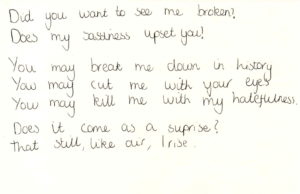 Did you want to see me broken?
Does my sassiness upset you?
You may break me down in history
You may cut me with your eyes
You may kill me with my hatefulness.
Does it come as a suprise?
That still, like air, I rise.